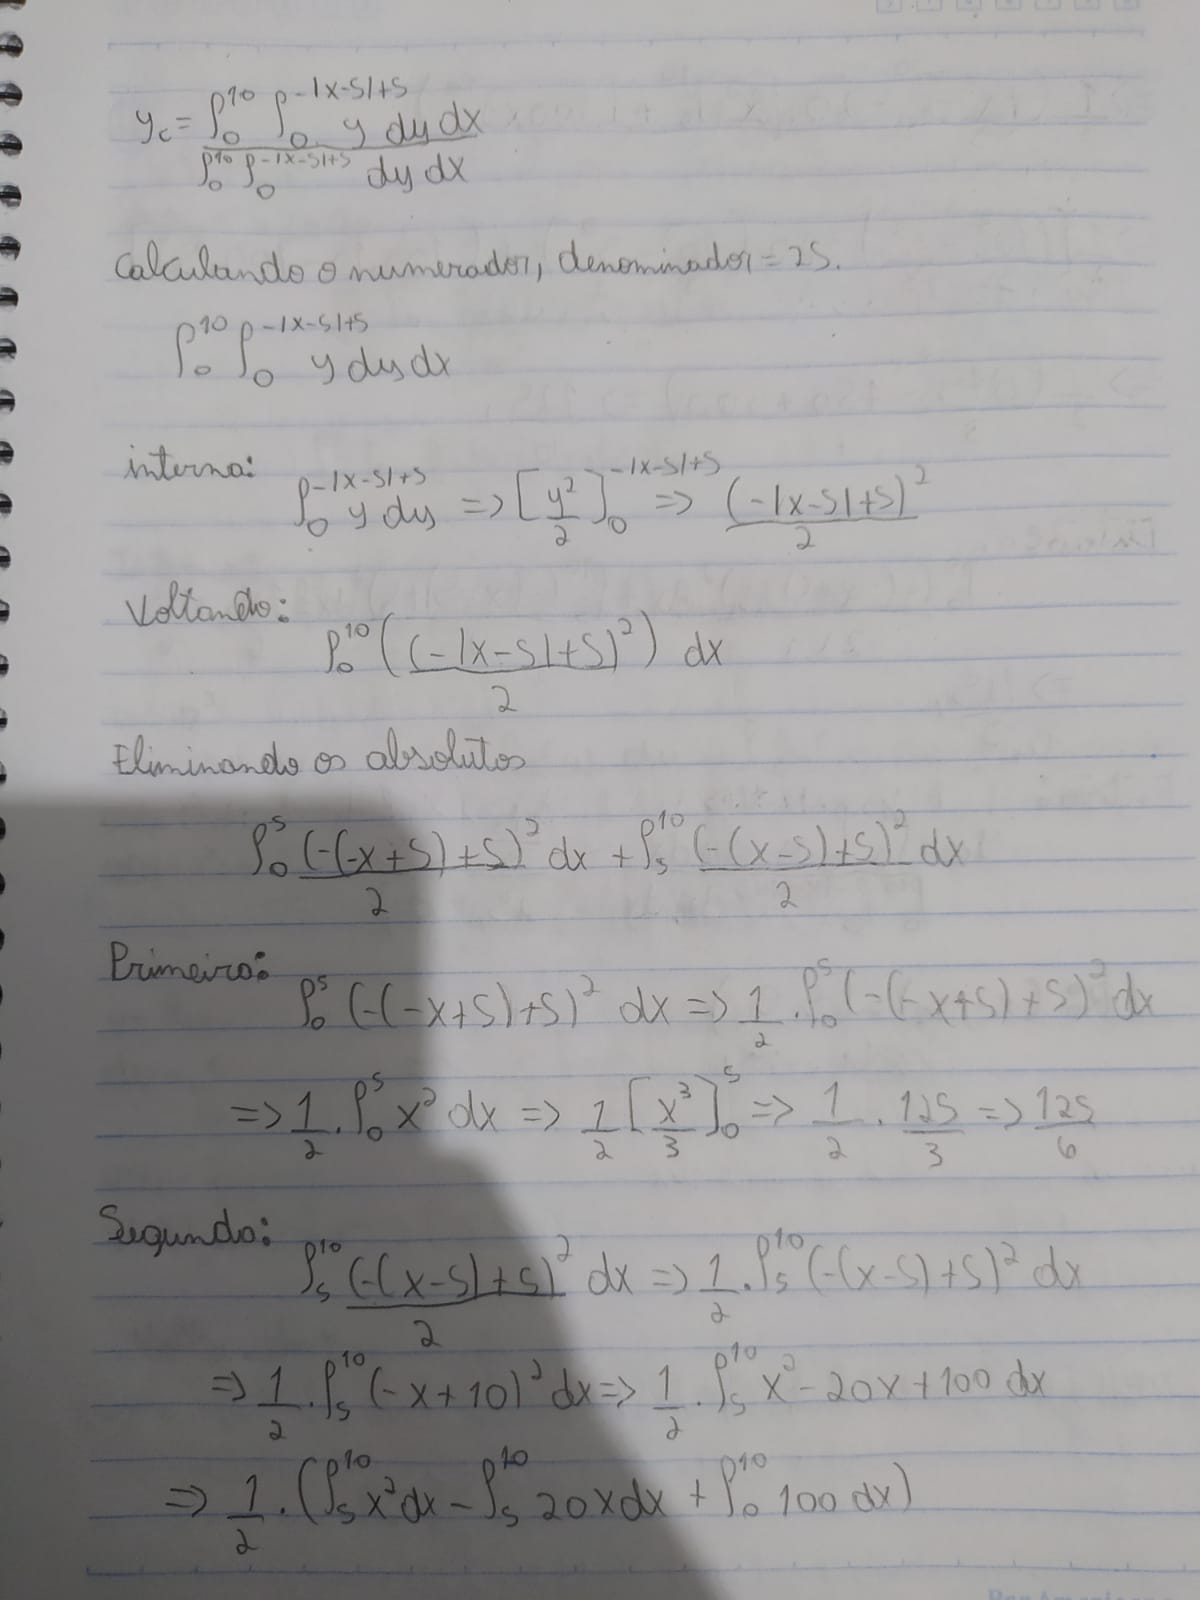 y_c = ∫₀¹⁰ ∫₀^(-|x-5|+5) y dy dx
∫₀¹⁰ ∫₀^(-|x-5|+5) dy dx
Calculando o numerador, denominador = 25.
∫₀¹⁰ ∫₀^(-|x-5|+5) y dy dx
interna: ∫₀^(-|x-5|+5) y dy => [y²/2]₀^(-|x-5|+5) => (-|x-5|+5)²/2
Voltando:
∫₀¹⁰ ((-|x-5|+5)²/2) dx
Eliminando os absolutos
∫₀⁵ (-(-x+5)+5)²/2 dx + ∫₅¹⁰ (-(x-5)+5)²/2 dx
Primeiro:
∫₀⁵ (-(-x+5)+5)² dx => 1/2 . ∫₀⁵ (-(-x+5)+5)² dx
=> 1/2 . ∫₀⁵ x² dx => 1/2 [x³/3]₀⁵ => 1/2 . 125/3 => 125/6
Segundo:
∫₅¹⁰ (-(x-5)+5)²/2 dx => 1/2 . ∫₅¹⁰ (-(x-5)+5)² dx
=> 1/2 . ∫₅¹⁰ (-x+10)² dx => 1/2 . ∫₅¹⁰ x² - 20x + 100 dx
=> 1/2 . (∫₅¹⁰ x² dx - ∫₅¹⁰ 20x dx + ∫₀¹⁰ 100 dx)